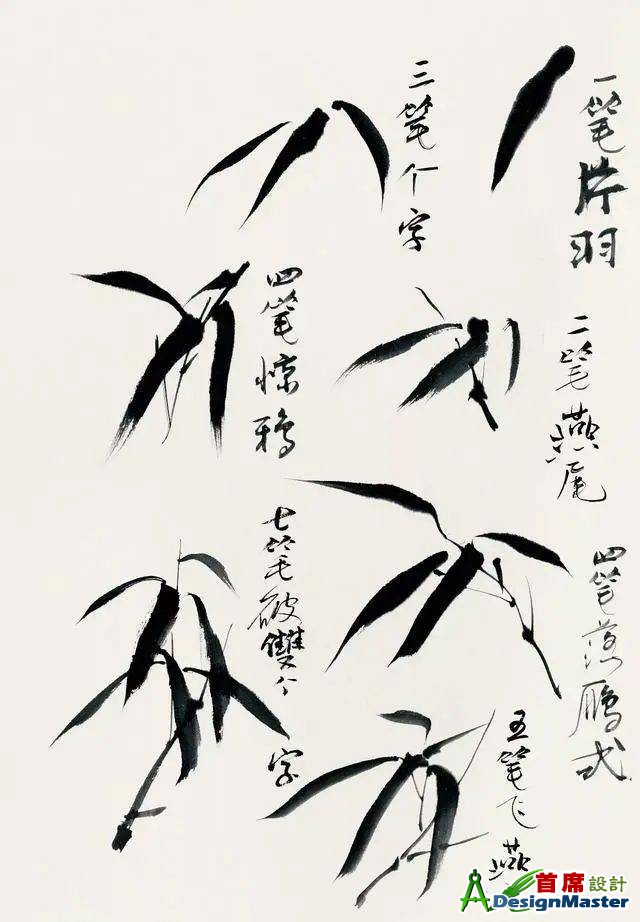 一笔片羽
三笔个字
二笔燕尾
四笔惊鸦
四笔落鹏式
七笔破雙个字
五笔飞燕
首席設計
DesignMaster